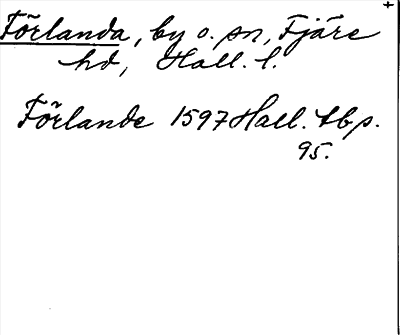 Förlanda, by o. sn, Fjäre
hd, Hall. l.
Förlande 1597 Hall. tbp.
95.